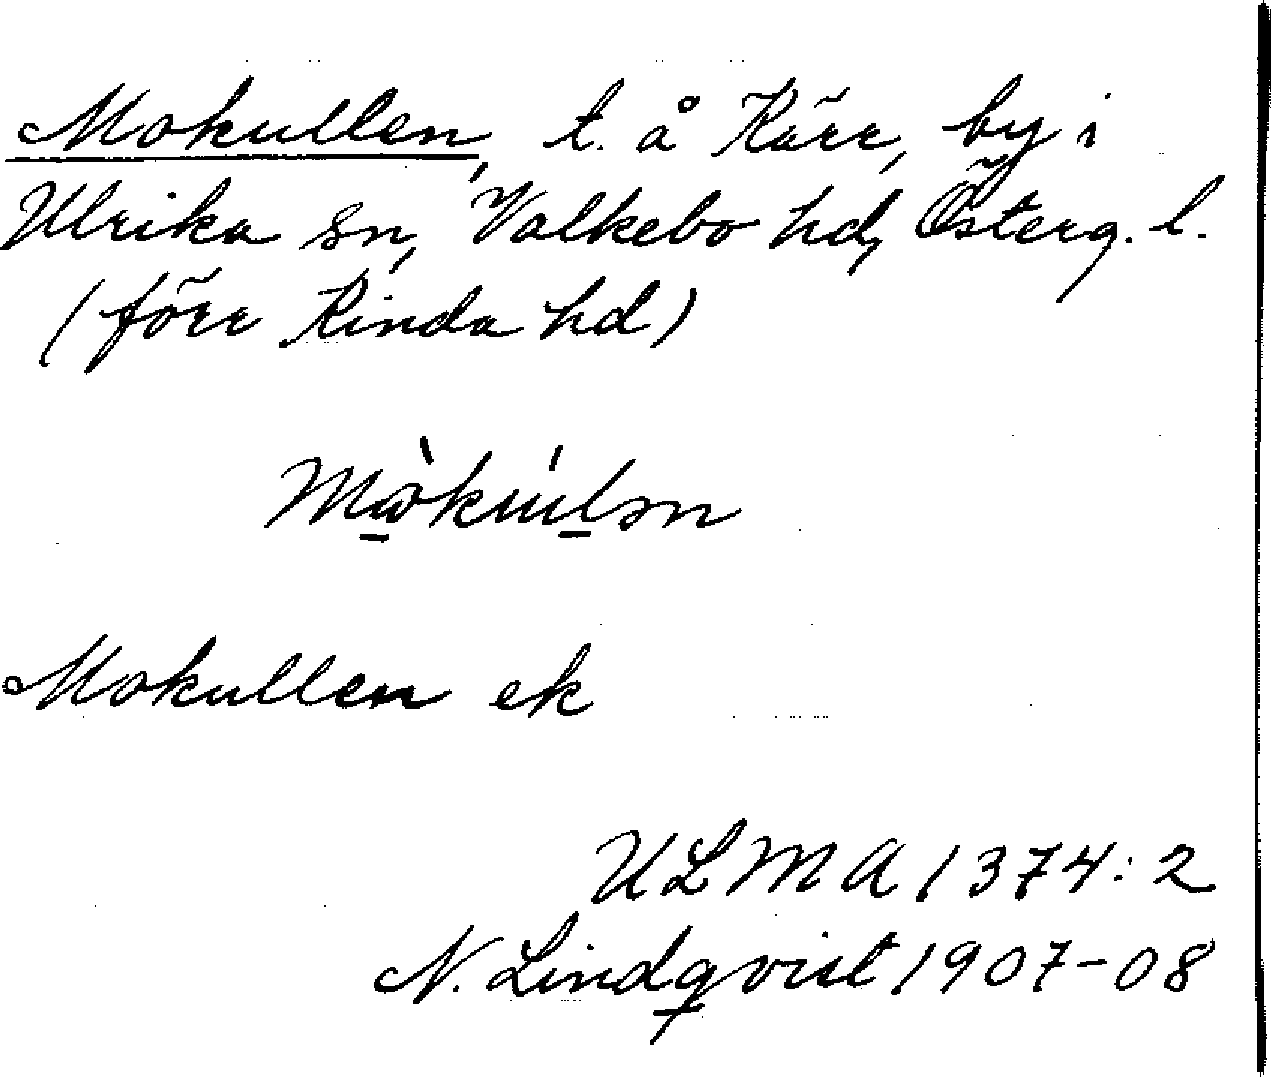 Mokullen, t. å Kärr, by i
Ulrika sn, Valkebo hd, Österg. l.
(förr Kinda hd)
Mokullen ek
ULMA 1374:2
N. Lindqvist 1907-08